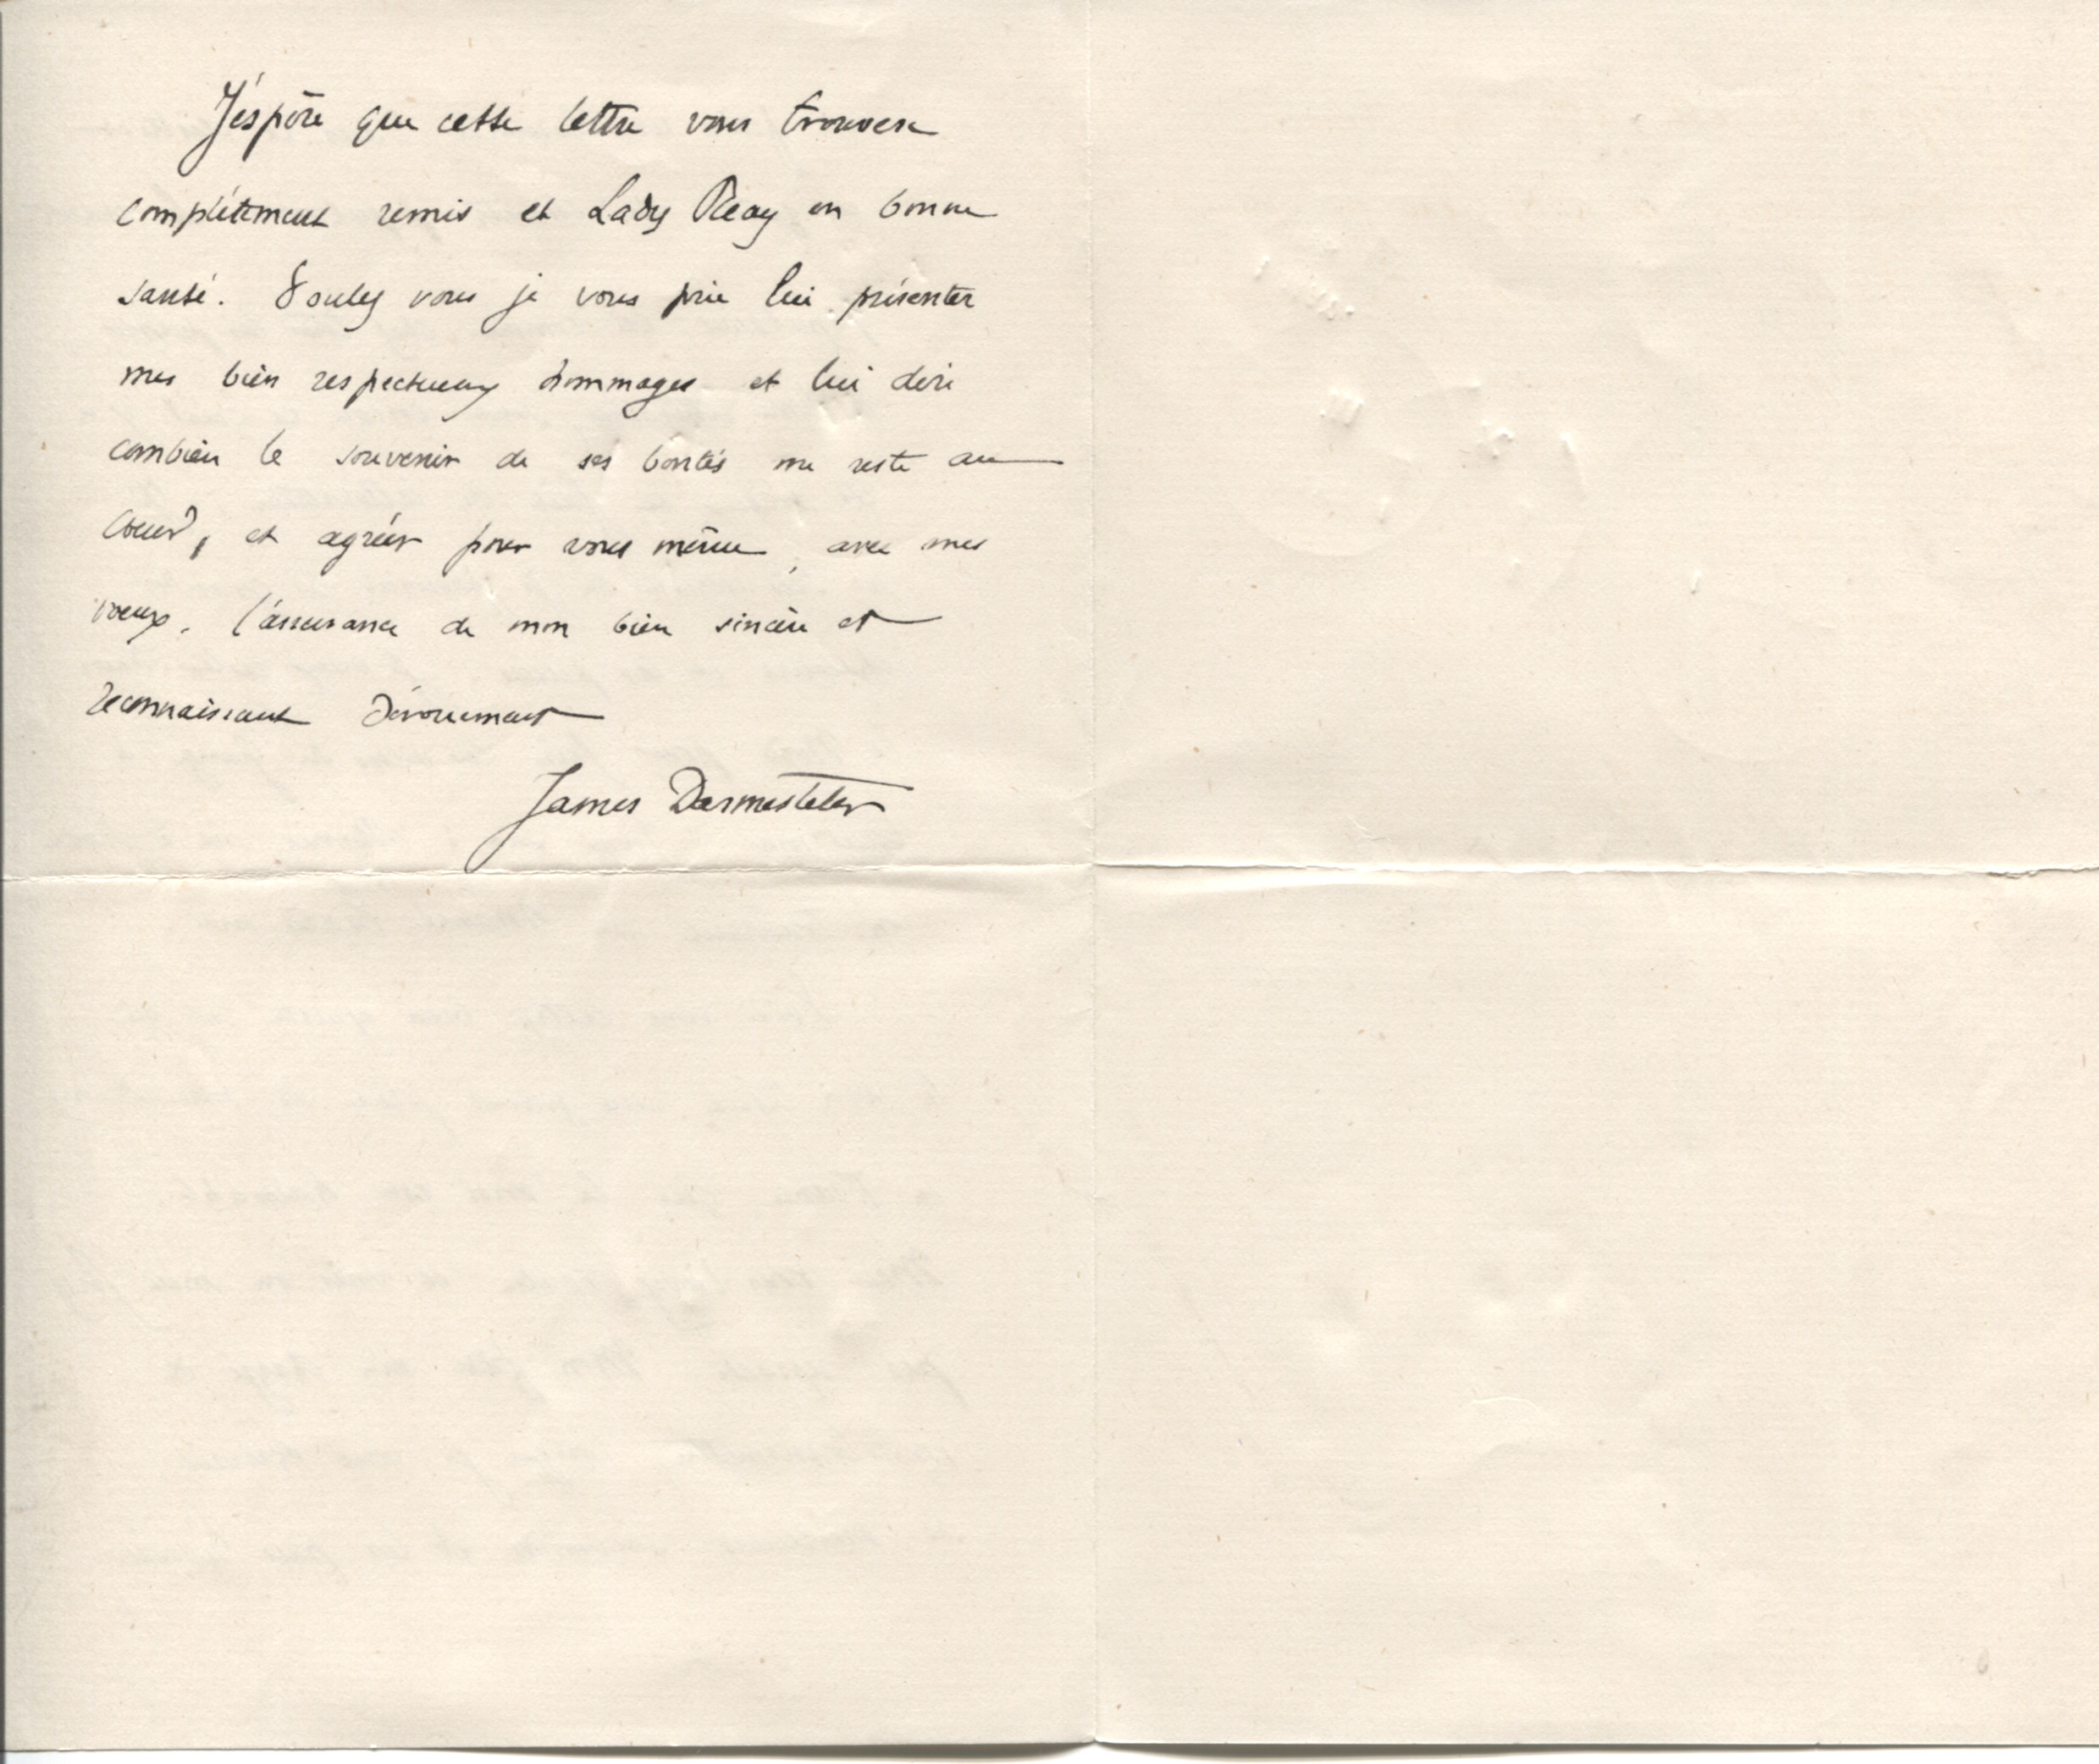 J'espère que cette lettre vous trouvera
complètement remis et Lady Reay en bonne
santé. Voulez vous je vous prie lui présenter
mes bien respectueux hommages et lui dire
combien le souvenir de ses bontés me reste au
coeur, et agréer pour vous même, avec mes
voeux, l'assurance de mon bien sincère et
reconnaissant dévouement
James Darmesteter